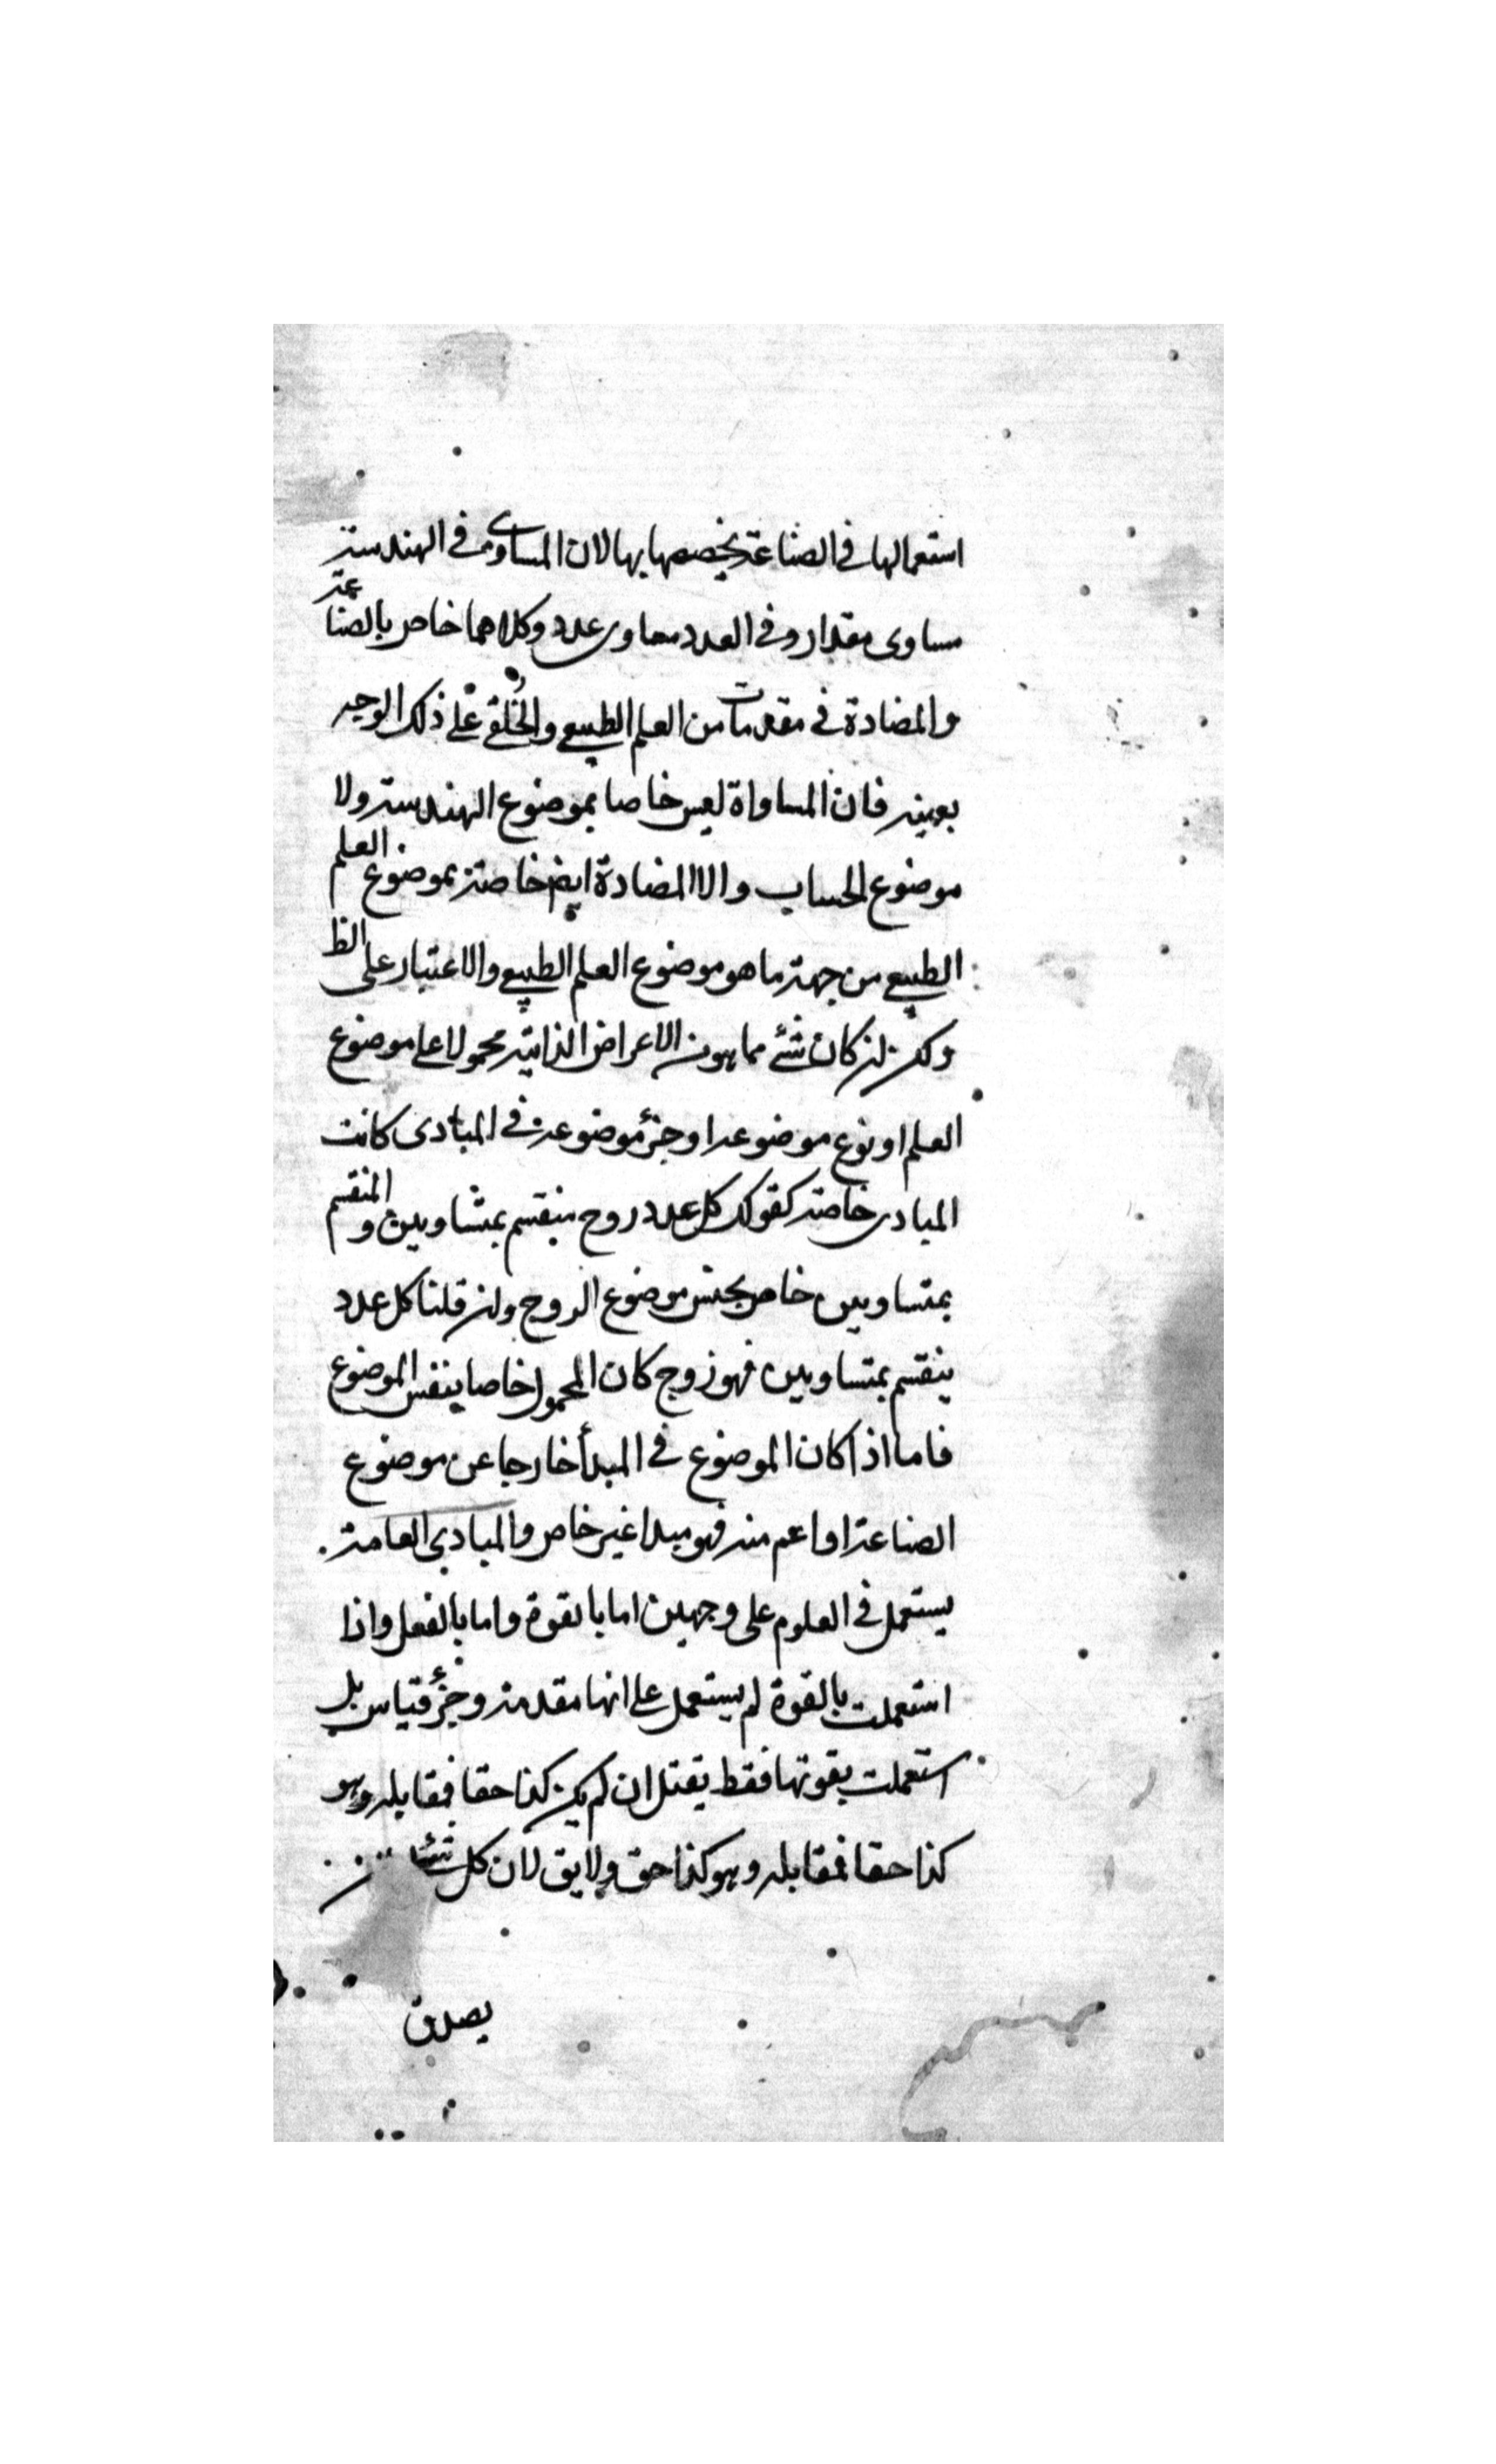 استعمالها في الصناعة يخصصها بها لان المساوى في الهندسة
مساوى مقدار وفي العدد مساوى عدد وكلاهما خاص بالصناعة
والمضادة في مقدمات من العلم الطبيعي والخلقي على ذلك الوجه
بعينه فان المساواة ليس خاصا بموضوع الهندسة ولا
موضوع الحساب والا المضادة ايضا خاصة بموضوع العلم
الطبيعي من جهة ما هو موضوع العلم الطبيعي والاعتبار على الظ
وكك ان كان شئ مما هو من الاعراض الذاتية محمولا على موضوع
العلم او نوع موضوعه او جزؤ موضوعه في المبادى كانت
المبادى خاصة كقولك كل عدد زوج ينقسم بمتساويين والمنقسم
بمتساويين خاص بجنس موضوع الزوج وان قلنا كل عدد
ينقسم بمتساويين فهو زوج كان المحمول خاصا بنفس الموضوع
فاما اذا كان الموضوع في المبدأ خارجا عن موضوع
الصناعة او اعم منه فهو مبدا غير خاص والمبادى العامة
يستعمل في العلوم على وجهين اما بالقوة واما بالفعل واذا
استعملت بالقوة لم يستعمل على انها مقدمة وجزؤ قياس بل
استعملت بقوتها فقط يقتل ان لم يكن كذا حقا فمقابله وهو
كذا حقا فمقابله وهو كذا حق ولا يق لان كل شئ
يصدق